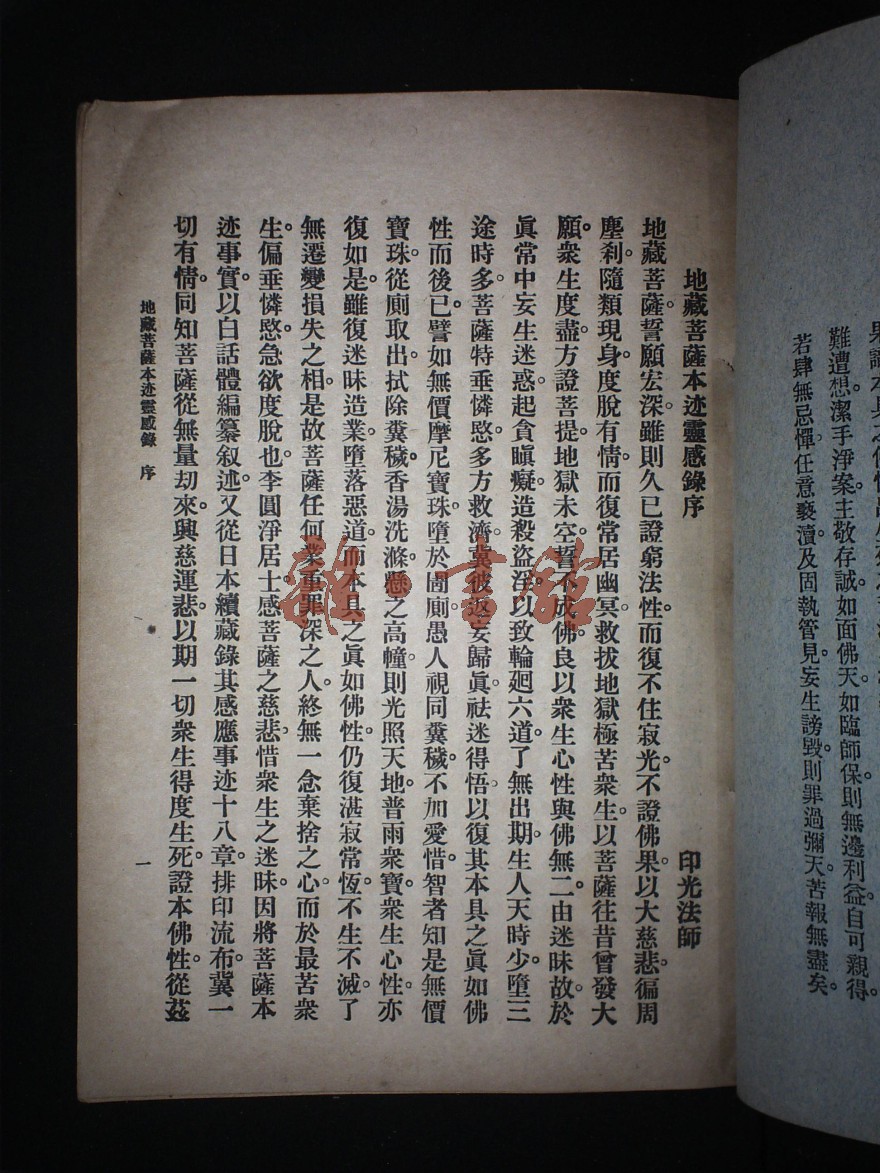 難遭想。潔手淨案。主敬存誠。如面佛天。如臨師保。則無邊利益。自可親得。
若肆無忌憚。任意褻瀆。及固執管見。妄生謗毀。則罪過彌天。苦報無盡矣。
地藏菩薩本迹靈感錄序
印光法師
地藏菩薩。誓願宏深。雖則久已證窮法性。而復不住寂光。不證佛果。以大慈悲。徧周
塵刹。隨類現身。度脫有情。而復常居幽冥。救拔地獄極苦衆生。以菩薩往昔曾發大
願。衆生度盡。方證菩提。地獄未空。誓不成佛。良以衆生心性。與佛無二。由迷昧故。於
眞常中。妄生迷惑。起貪瞋癡。造殺盜淫。以致輪廻六道。了無出期。生人天時少。墮三
途時多。菩薩特垂憐愍。多方救濟。冀彼返妄歸眞。袪迷得悟。以復其本具之眞如佛
性而後已。譬如無價摩尼寶珠。墮於圊廁。愚人視同糞穢。不加愛惜。智者知是無價
寶珠。從廁取出。拭除糞穢。香湯洗滌。懸之高幢。則光照天地。普雨衆寶。衆生心性。亦
復如是。雖復迷昧造業。墮落惡道。而本具之眞如佛性。仍復湛寂常恆。不生不滅。了
無遷變損失之相。是故菩薩任何業重罪深之人。終無一念棄捨之心。而於最苦衆
生。偏垂憐愍。急欲度脫也。李圓淨居士。感菩薩之慈悲。惜衆生之迷昧。因將菩薩本
迹事實。以白話體編纂叙述。又從日本續藏。錄其感應事迹十八章。排印流布。冀一
切有情。同知菩薩從無量劫來。興慈運悲。以期一切衆生。得度生死。證本佛性。從茲
地藏菩薩本迹靈感錄 序
一
雜·書館